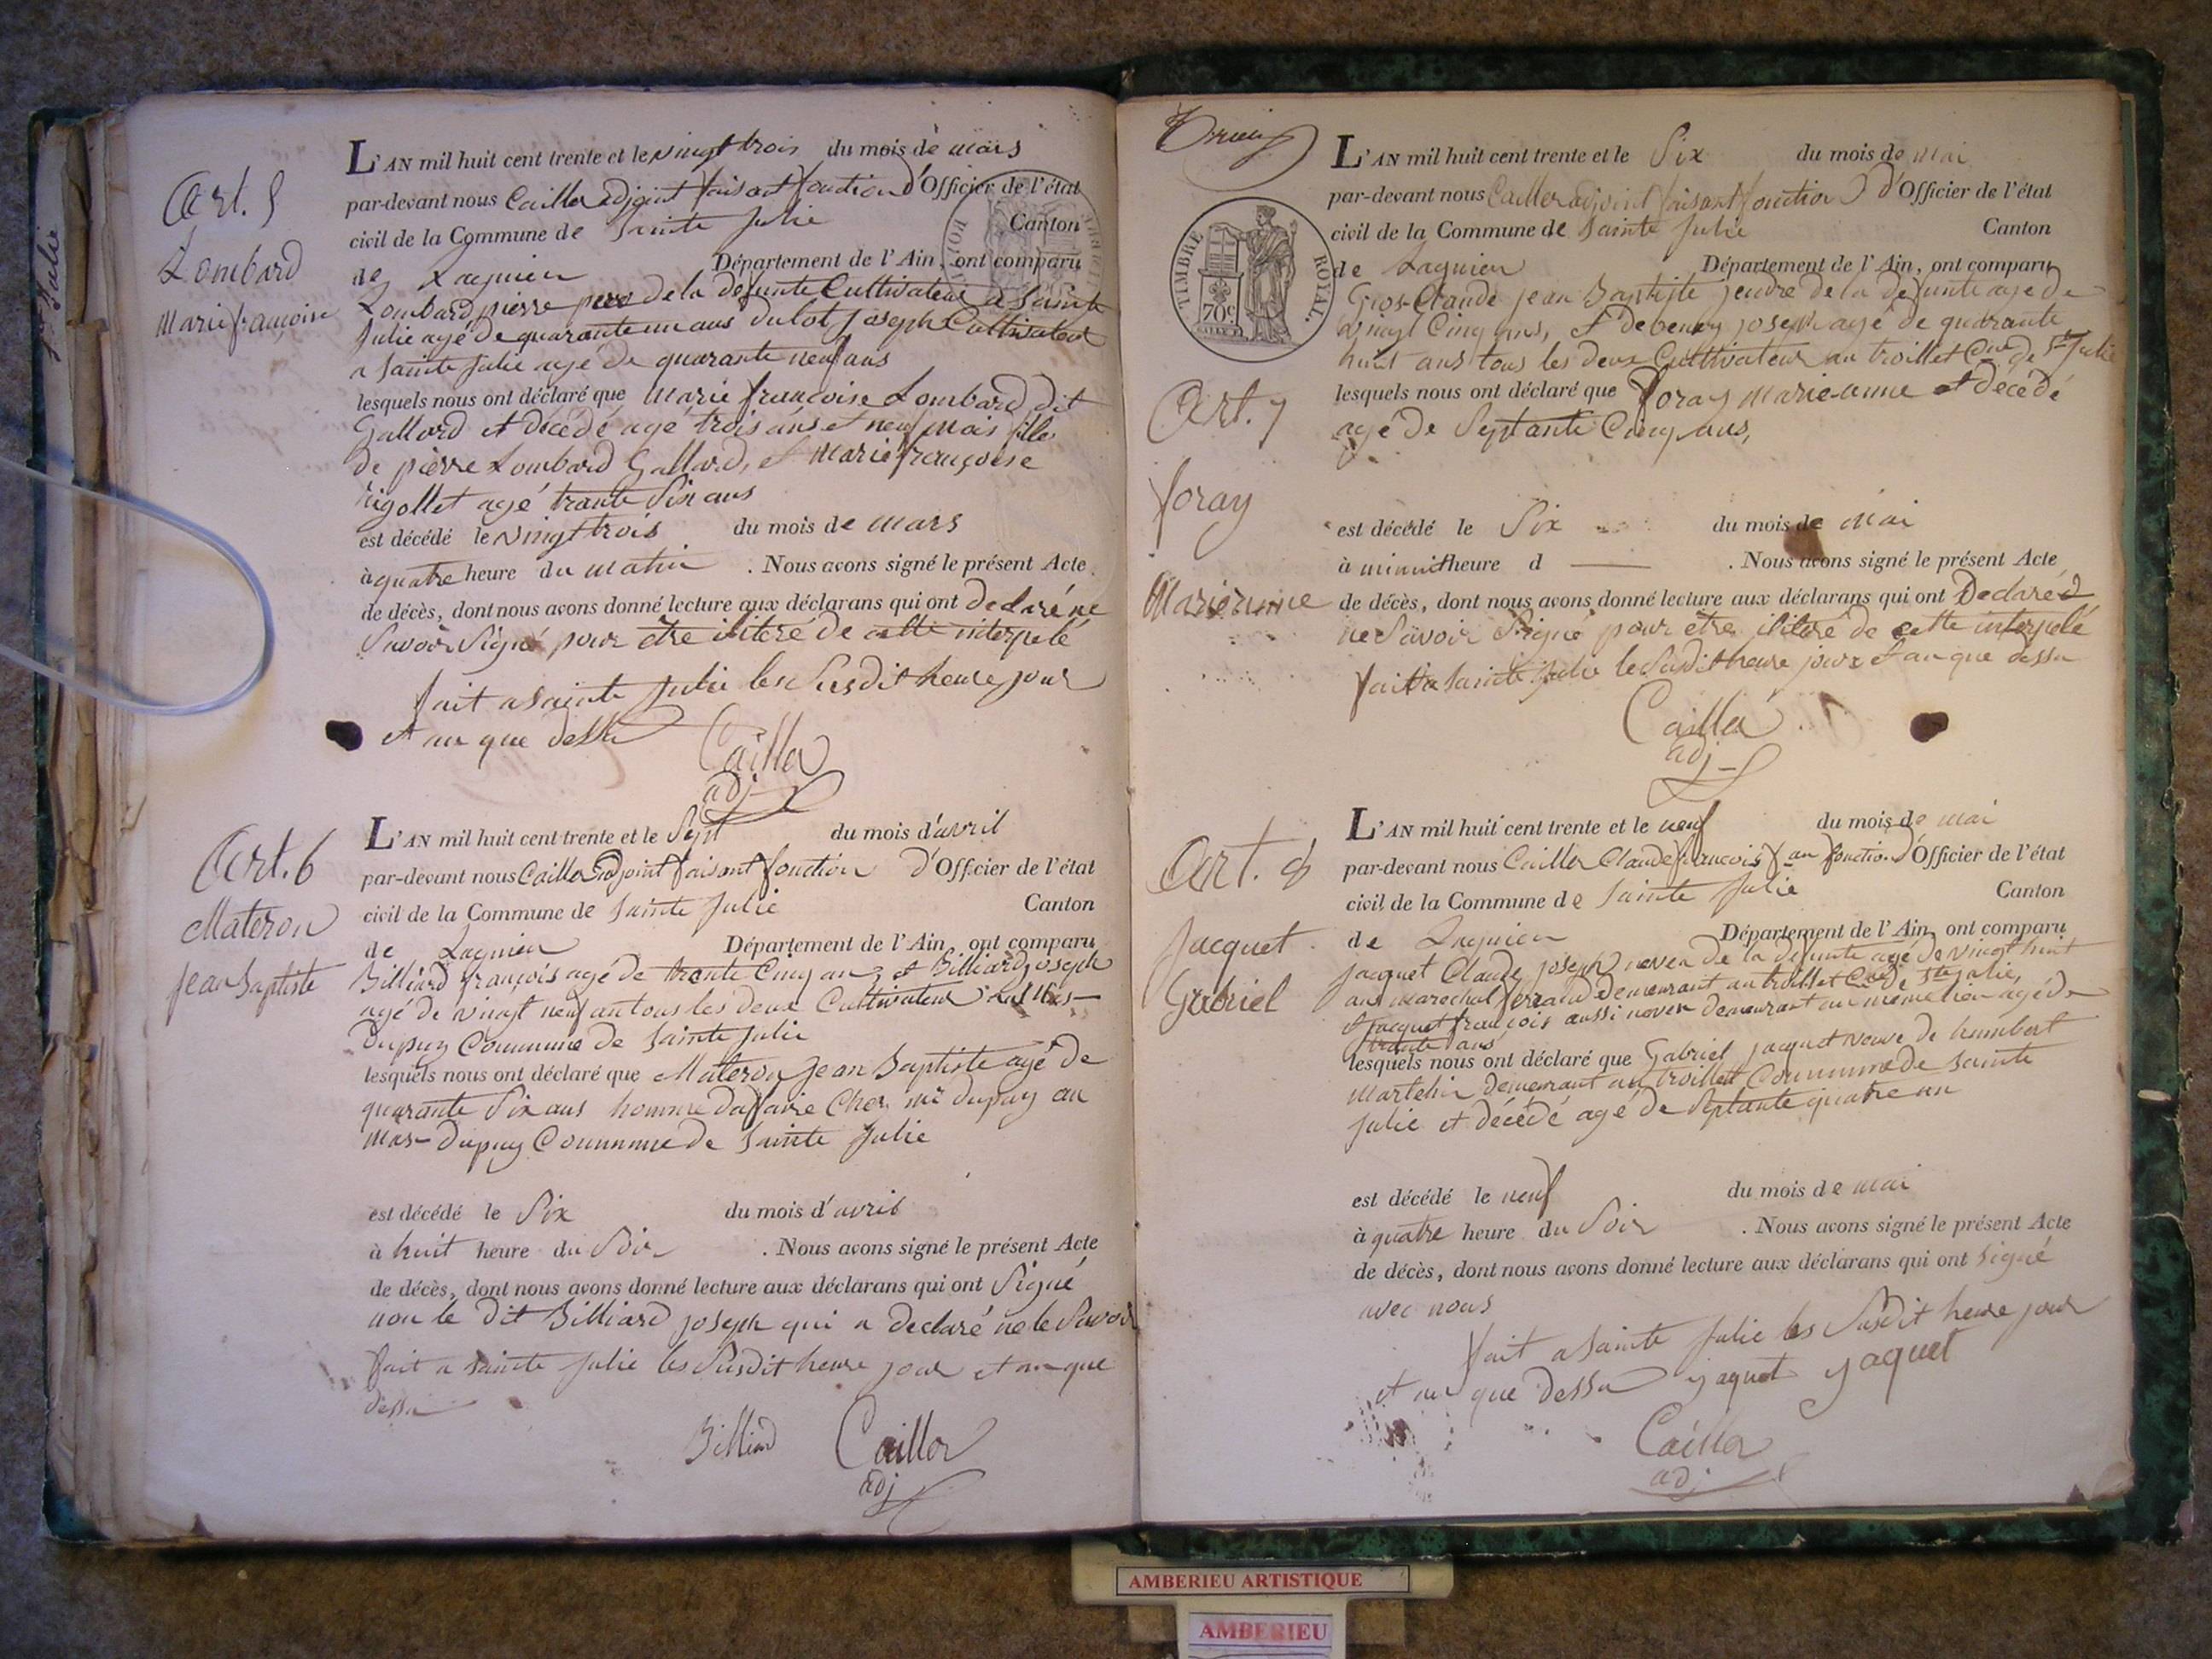 Ste Julie
Art. 5
Lombard
Marie françoise
L'AN mil huit cent trente et le vingt trois du mois de mars
par-devant nous Cailler adjoint faisant fonction d'Officier de l'état
civil de la Commune de Sainte Julie Canton
de Lagnieu Département de l'Ain, ont comparu
Lombard pierre pere de la defunte Cultivateur a Sainte
Julie agé de quarante un ans dulot joseph Cultivateur
a Sainte Julie agé de quarante neuf ans
lesquels nous ont déclaré que Marie françoise Lombard dit
Gallard et décédé agé trois ans et neuf mois fille
de pierre Lombard Gallard, et Marie françoise
rigollet agé trante Six ans
est décédé le vingt trois du mois de mars
à quatre heure du matin . Nous avons signé le présent Acte
de décès, dont nous avons donné lecture aux déclarans qui ont declaré ne
Savoir Signé pour être iliteré de cette interpelé
fait a Sainte Julie les Susdit heure jour
et an que dessu
Cailler
adj
Art. 6
Materon
Jean Baptiste
L'AN mil huit cent trente et le Sept du mois d'avril
par-devant nous Cailler adjoint faisant fonction d'Officier de l'état
civil de la Commune de Sainte Julie Canton
de Lagnieu Département de l'Ain, ont comparu
Billiard françois agé de trante Cinq an, et Billiard joseph
agé de vingt neuf an tous les deux Cultivateur Mas-
Dupuy Commune de Sainte Julie
lesquels nous ont déclaré que Materon Jean Baptiste agé de
quarante Six ans homme Daffaire Cher mr Dupuy au
mas-dupuy Commune de Sainte Julie
est décédé le Six du mois d'avril
à huit heure du Soir . Nous avons signé le présent Acte
de décès, dont nous avons donné lecture aux déclarans qui ont Signé
non le Dit Billiard joseph qui a declaré ne le Savoir
fait a Sainte Julie les Susdit heure jour et an que
dessu
Billiard Cailler
adj
TIMBRE ROYAL.
70c
Art. 7
foray
Marie anne
L'AN mil huit cent trente et le Six du mois de mai
par-devant nous Cailler adjoint faisant fonction d'Officier de l'état
civil de la Commune de Sainte Julie Canton
de Lagnieu Département de l'Ain, ont comparu
Gros-Claude jean Baptiste jendre de la defunte age de
vingt Cinq ans, et Debeney joseph agé de quarante
huit ans tous les deux Cultivateur au troillet Cne de Ste Julie
lesquels nous ont déclaré que foray Marie-anne et décédé
agé de Septante Cinq ans,
est décédé le Six du mois de mai
à minuit heure d — . Nous avons signé le présent Acte
de décès, dont nous avons donné lecture aux déclarans qui ont Declaré
ne Savoir Signé pour etre iliteré de cette interpelé
fait a Sainte Julie le Susdit heure jour et an que dessu
Cailler
adj
Art. 8
Jacquet
Gabriel
L'AN mil huit cent trente et le neuf du mois de mai
par-devant nous Cailler Claude françois f an fonction d'Officier de l'état
civil de la Commune de Sainte Julie Canton
de Lagnieu Département de l'Ain, ont comparu
jacquet Claude joseph neveu de la defunte agé de vingt huit
ans marechal ferrand demeurant au troillet Cne de Ste julie,
et jacquet françois aussi neveu demeurant au meme lieu agé de
trante ans
lesquels nous ont déclaré que Gabriel jacquet veuve de humbert
Martelin demeurant au troillet Commune de Sainte
Julie et décédé agé de Septante quatre an
est décédé le neuf du mois de mai
à quatre heure du Soir . Nous avons signé le présent Acte
de décès, dont nous avons donné lecture aux déclarans qui ont signé
avec nous
fait a Sainte Julie les Susdit heure jour
et an que dessu jaquet jaquet
Cailler
adj
AMBERIEU ARTISTIQUE
AMBERIEU